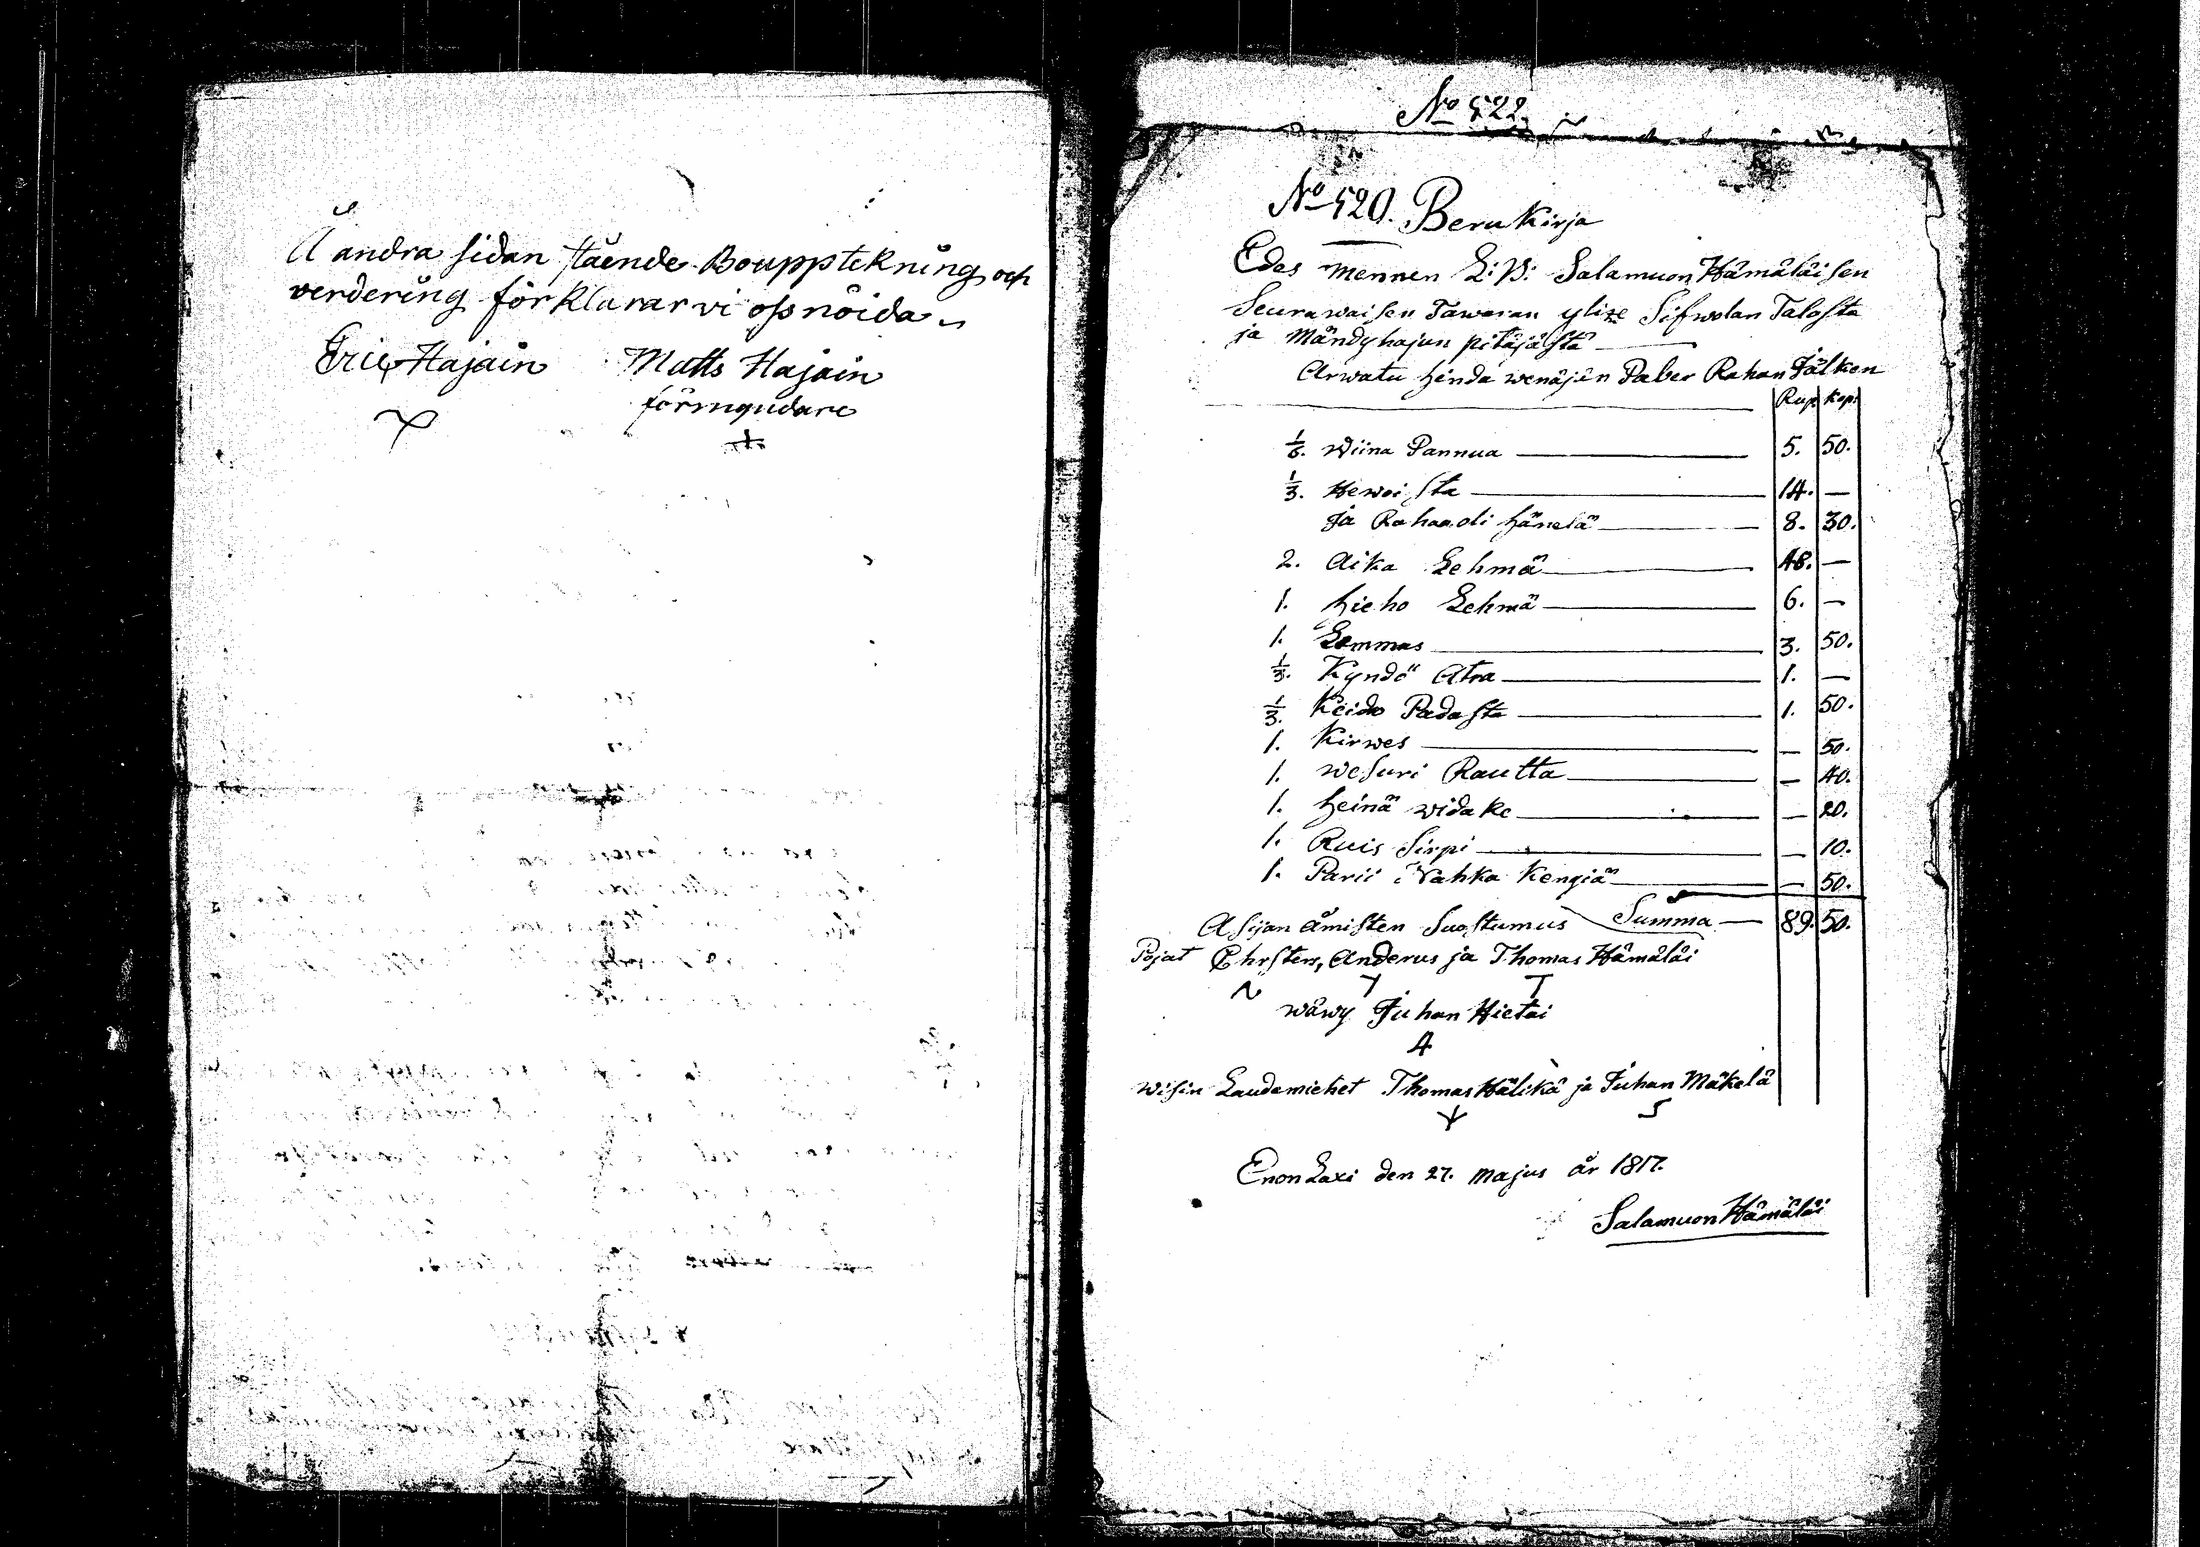 Å andra sidan stående Bouppteckning och
verdering förklarar vi oss nöida
Eric Hajain Matts Hajain
förmyndare
No 522.
No 520. Beru Kirja
Edes mennen L: V: Salamuon Hämäläisen
Seurawaisen Tawaran ylize Sifwolan Talosta
ja Mändyhajun pitäjästä
Arwatu hinda wenäjän Paber Rahan Jälken
Rup. Kop.
1/6. Wiina Pannua 5. 50.
1/3. Hewoista 14. —
ja Rahaa oli hänelä 8. 30.
2. Aika Lehmä 48. —
1. hieho Lehmä 6. —
1. Lammas 3. 50.
1/3. Kyndö Atra 1. —
1/3. Keido Padasta 1. 50.
1. Kirwes — 50.
1. Wesuri Rautta — 40.
1. heinä widake — 20.
1. Ruis Sirpi — 10.
1. Parii Nahka Kengiä — 50.
Asijan ämisten Suostumus Summa — 89. 50.
Pojat Chrsters, Anderus ja Thomas Hämäläi
wäwy Juhan Hietai
A
Wisin Laudamiehet Thomas Hälikä ja Juhan Mäkelä
Enon Laxi den 27. Majus år 1817.
Salamuon Hämäläi